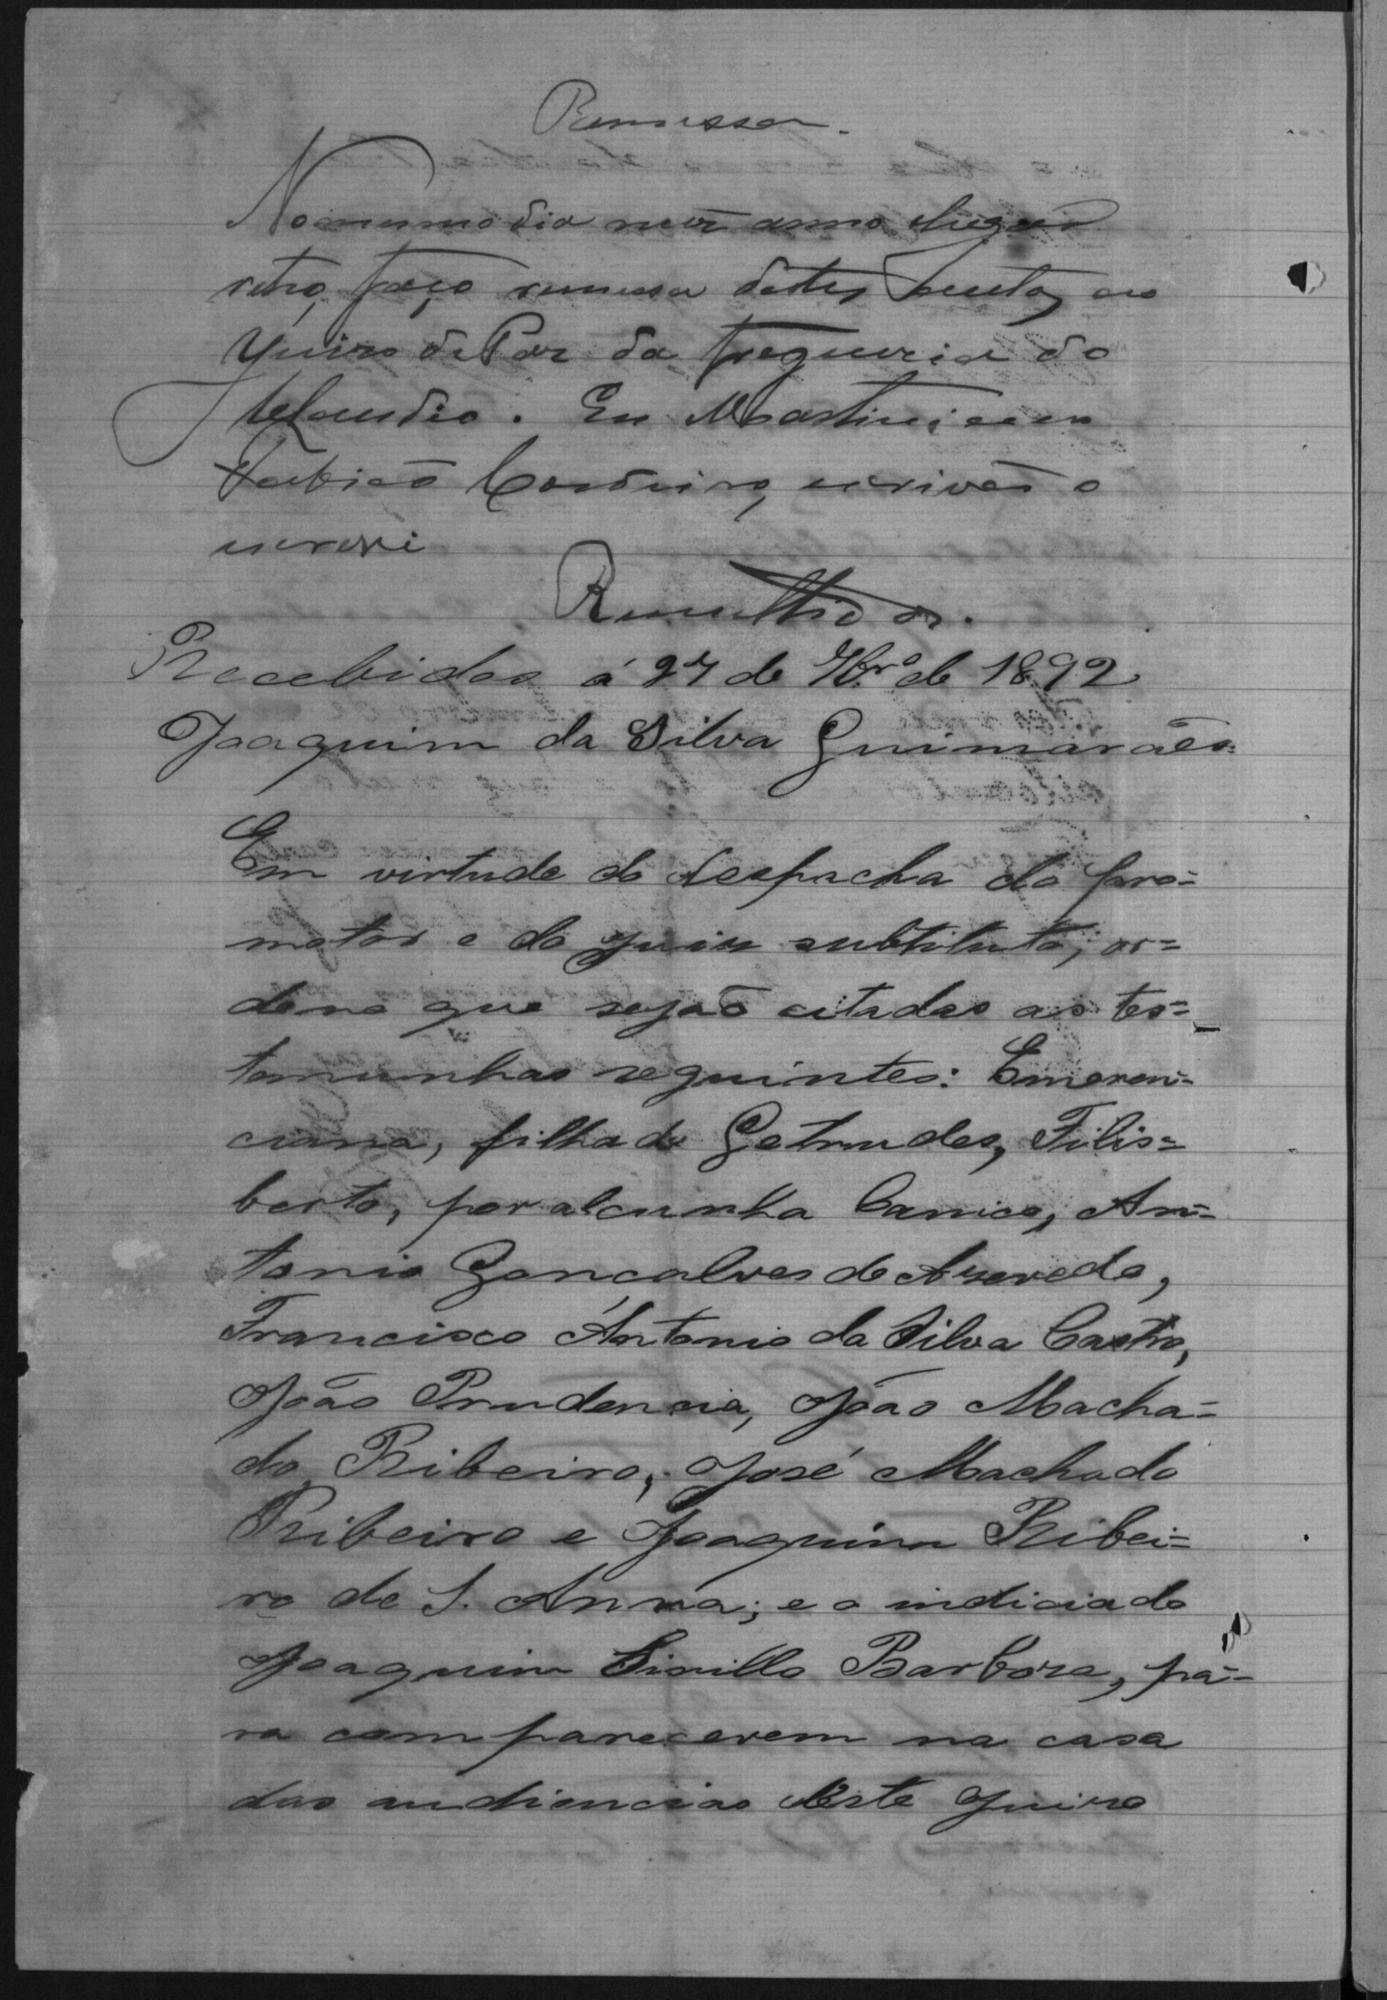 Remessa.
No mesmo dia mez anno e lugar
retro, faço remessa destes autos ao
Juizo de Paz da freguezia do
Claudio. Eu Martiniano
Fabião Cordeiro, escrivão o
escrevi
Remettidos.
Recebidos á 27 de 7br.º de 1892
Joaquim da Silva Guimarães
Em virtude do despacho do pro=
motor e do juiz subtituto, or=
deno que sejão citadas as tes=
temunhas seguintes: Emeren=
ciana, filha de Getrudes, Filis=
berto, por alcunha Canico, An=
tonio Gonçalves de Azevedo,
Francisco Antonio da Silva Castro,
João Prudencia, João Macha=
do Ribeiro, José Machado
Ribeiro e Joaquim Ribei=
ro de S. Anna; e o indiciado
Joaquim Sirillo Barboza, pa=
ra comparecerem na casa
das audiencias deste juizo